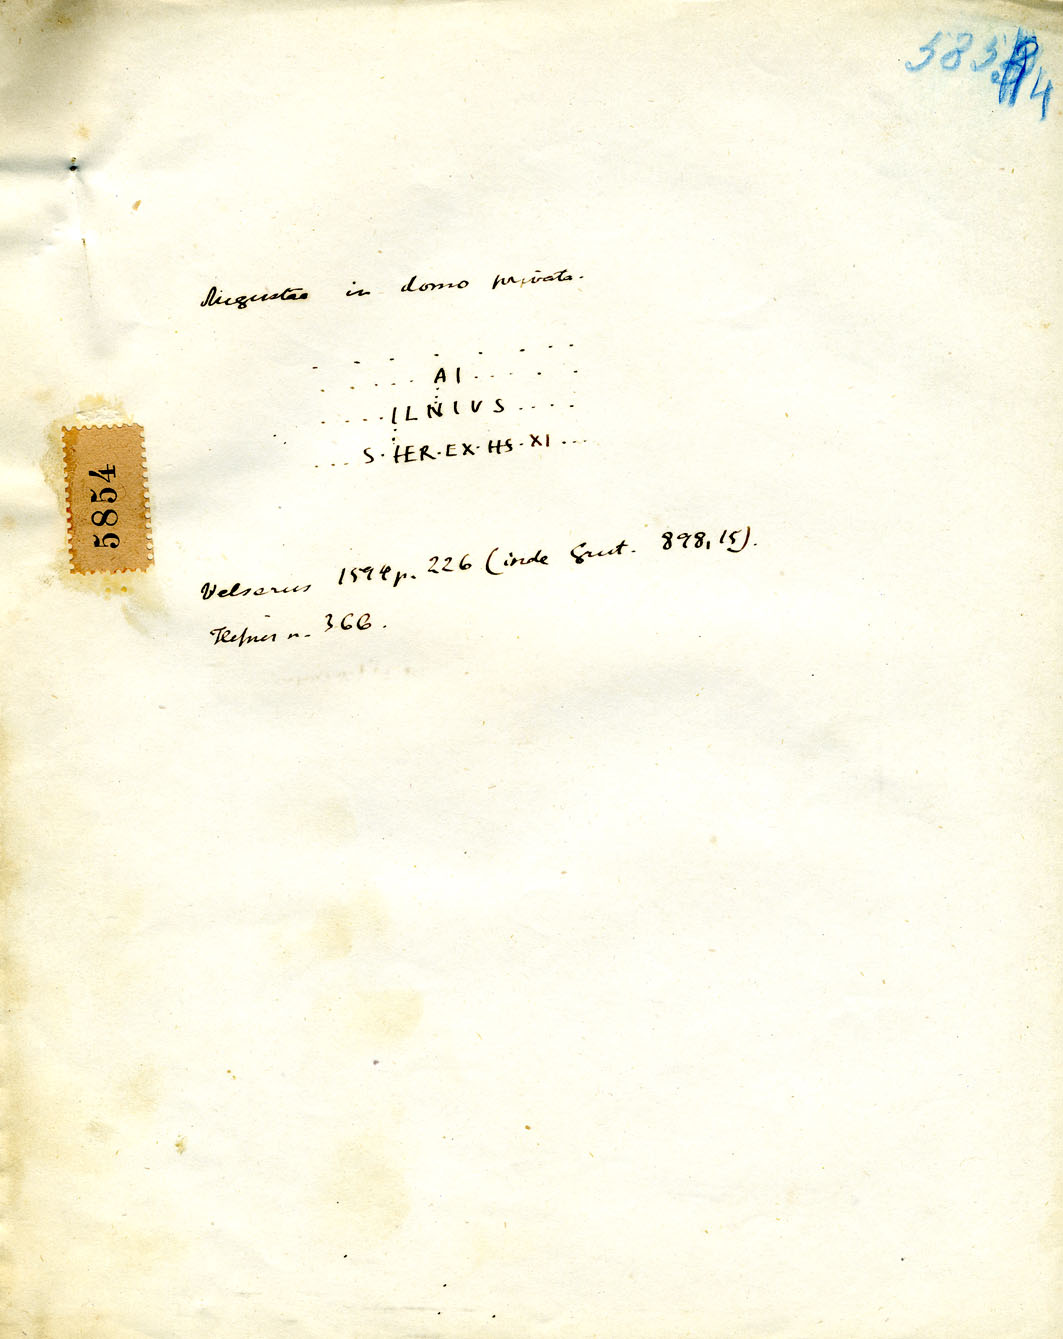 5854
Augustae in domo privata.
. . . . . . .
. . . . . . AI . . . . .
. . . . . ILNIVS . . . .
. . . S · IER · EX · HS · XI . . .
5854
Velserus 1594 p. 226 (inde Grut. 898, 15).
Hefner n. 366.